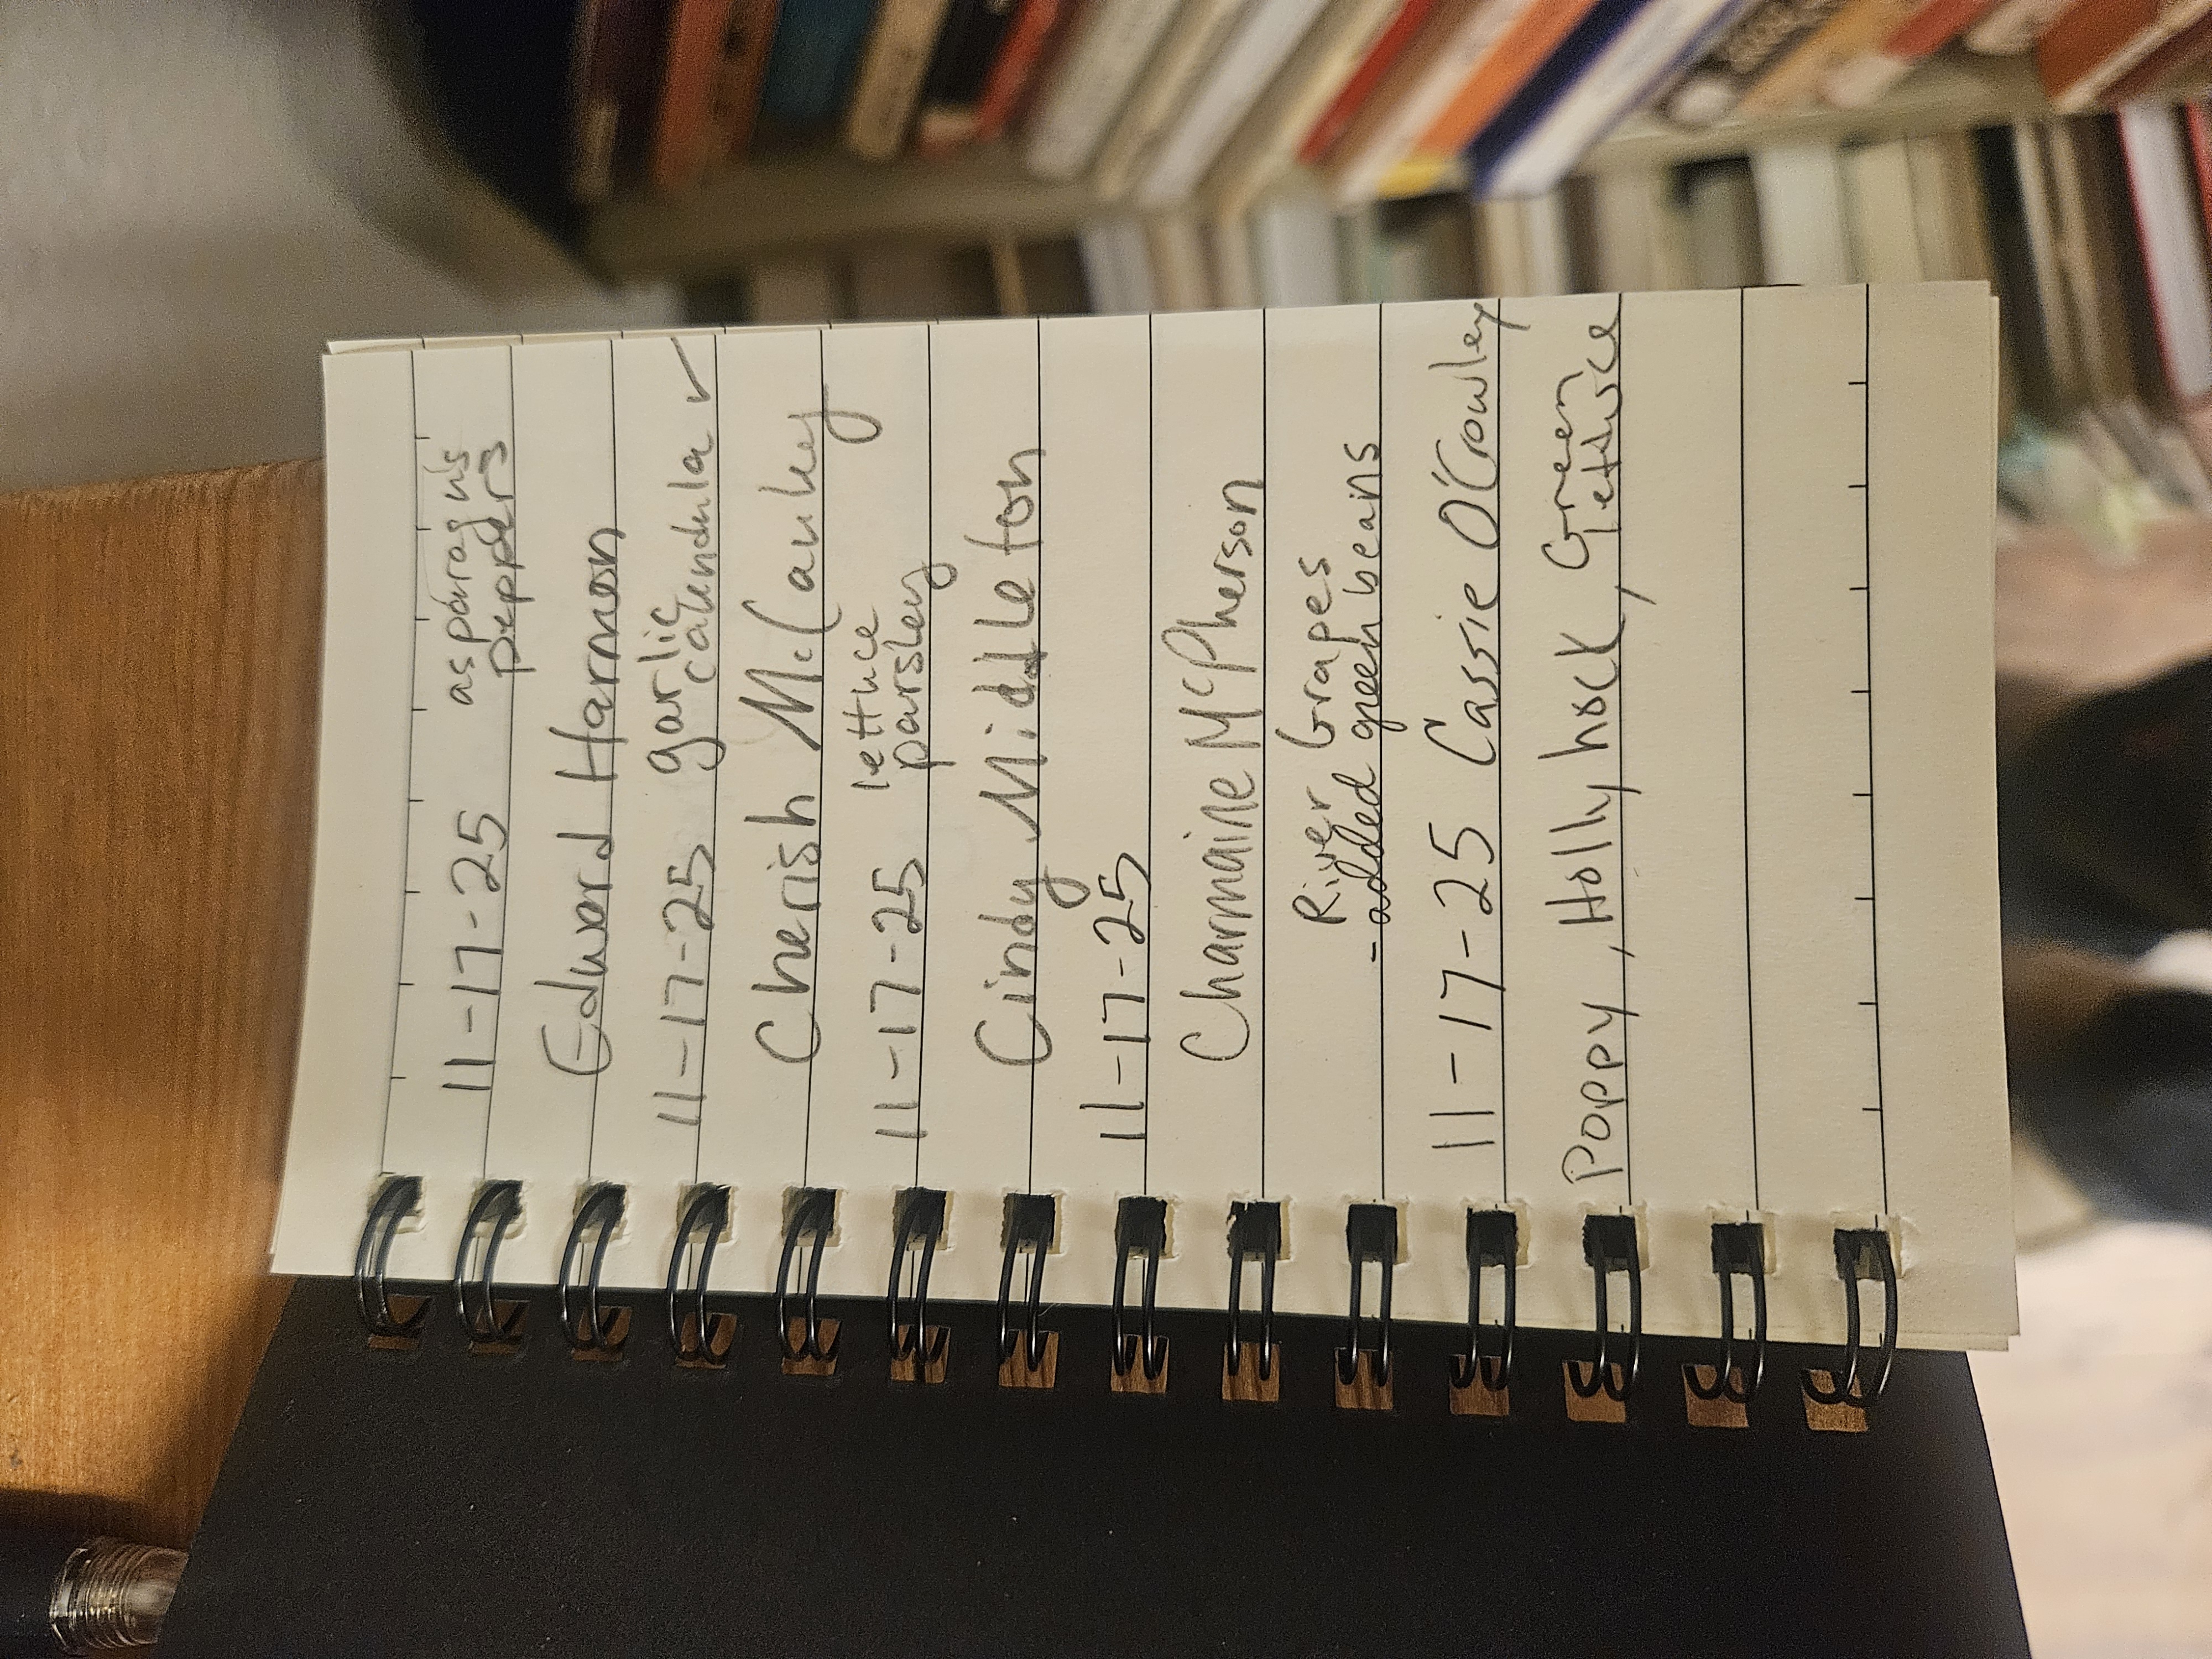 11-17-25 asparagus
peppers
Edward Harmon
11-17-25 garlic
calendula ✓
Cherish McCauley
11-17-25 lettuce
parsley
Cindy Middleton
11-17-25
Charmaine McPherson
River Grapes
- added green beans
11-17-25 Cassie O'Crowley
Poppy, Hollyhock, Green
lettuce